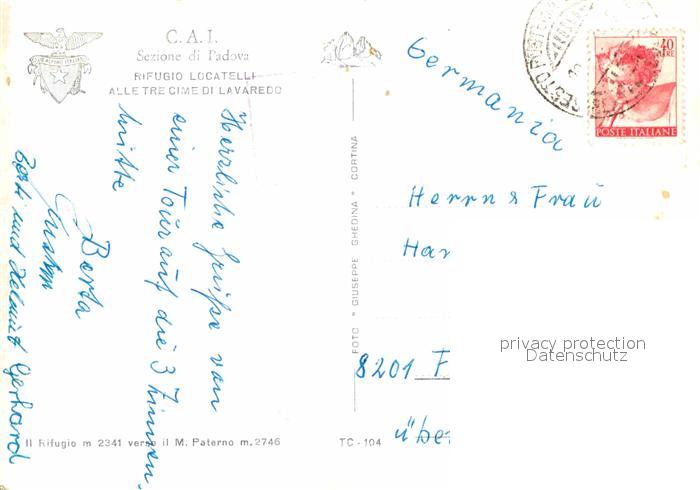 C. A. I.
Sezione di Padova
RIFUGIO LOCATELLI
ALLE TRE CIME DI LAVAREDO
CLUB ALPINO ITALIANO
Herzliche Grüße von
einer Tour auf die 3 Zinnen-
hütte
Berta
Gerhard
Il Rifugio m 2341 verso il M. Paterno m. 2746
TC - 104
FOTO * GIUSEPPE GHEDINA * CORTINA
40
LIRE
POSTE ITALIANE
Germania
Herrn & Frau
Har
8201 F
übe
privacy protection
Datenschutz